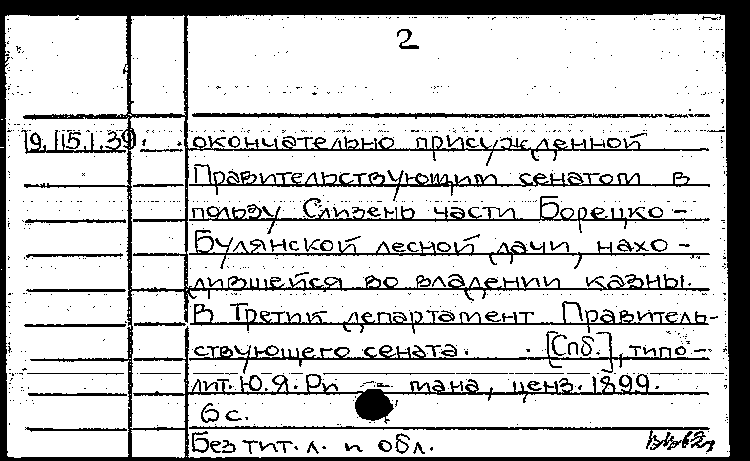 2
19.115.1.39. окончательно присужденной
Правительствующим сенатом в
пользу Слизень части Борецко-
Булянской лесной дачи, нахо-
дившейся во владении казны.
В Третий департамент Правитель-
ствующего сената. [Спб.], типо-
лит. Ю.Я. Ри - мана, ценз. 1899.
6 с.
Без тит. л. и обл.